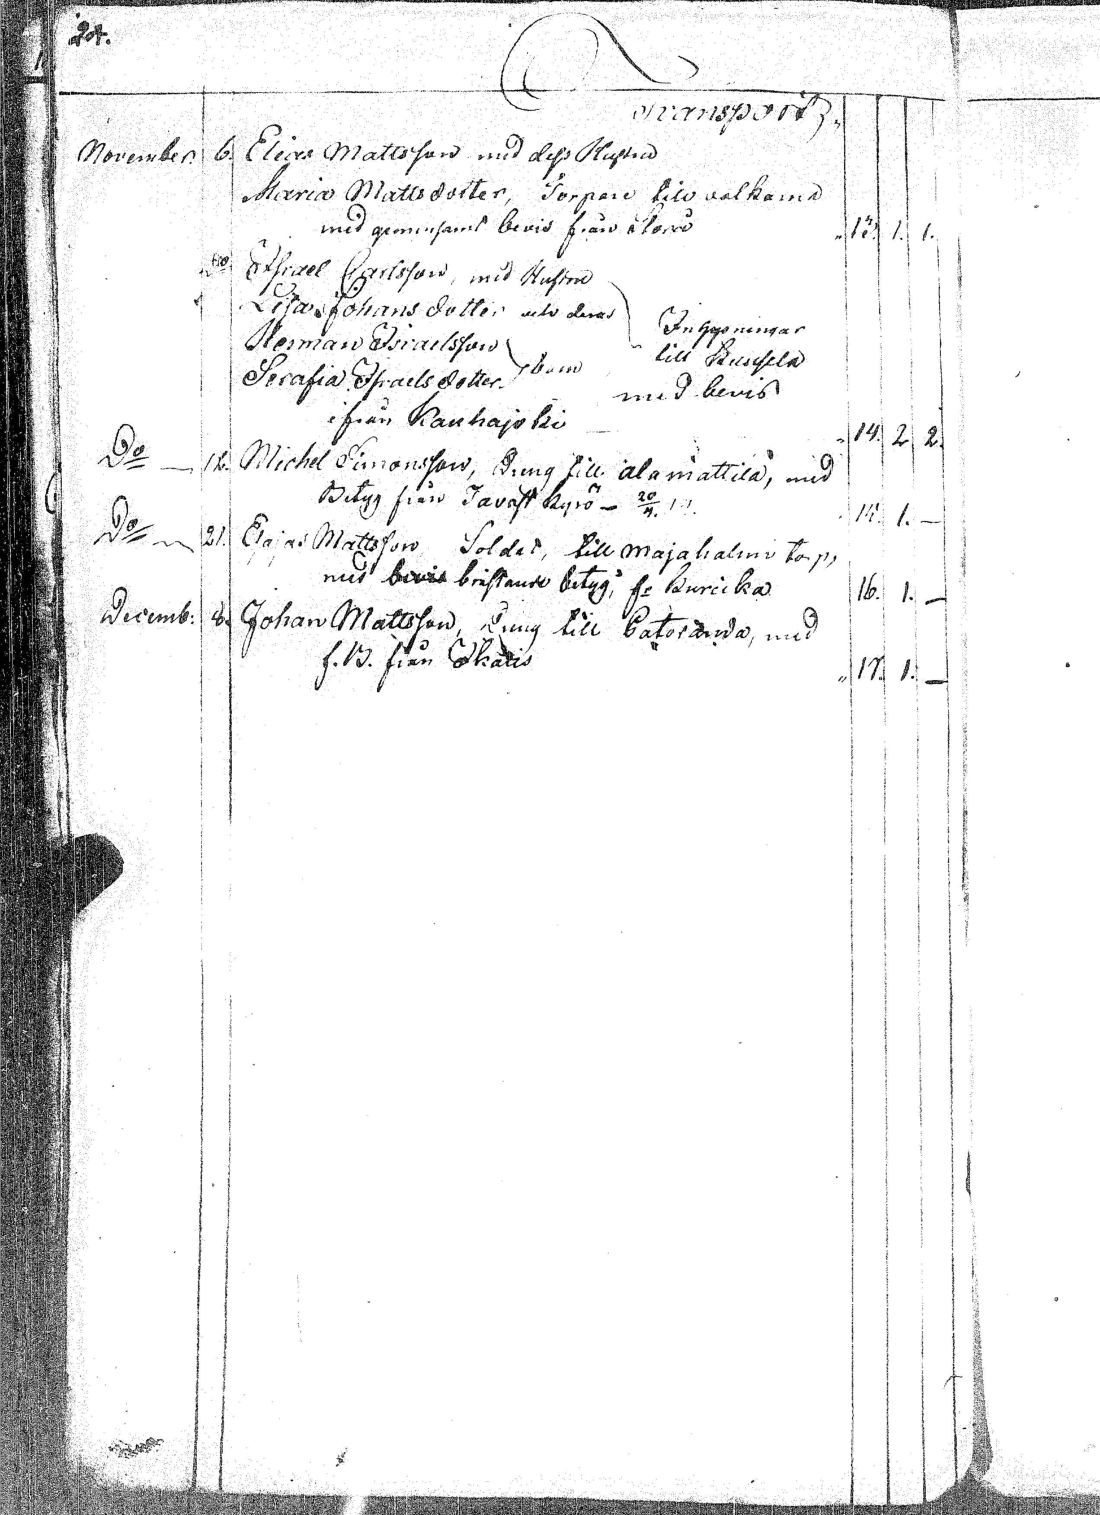 24.
Transport
November. 6. Elias Mattsson med dess Hustru
Maria Mattsdotter, Torpare till valkama
med gemensamt bevis från Storrö „ 13. 1. 1.
Do Israel Carlsson, med Hustru
Lisa Johansdotter och deras
Herman Israelsson Inhysningar
Serafia Israelsdotter barn till
med bevis
ifrån Kauhajoki „ 14. 2. 2.
Do — 12. Michel Simonsson, Dreng till alamattila, med
Betyg från Tavast Kyrö — 20/4. 15. 1. —
Do — 21. Elajas Mattsson Soldat, till majahalmi torp,
med bevis bristande betyg, fr Kurcika 16. 1. —
Decemb: 8. Johan Mattsson, Dreng till Gatstranda, med
f. B. från Ikalis „ 17. 1. —